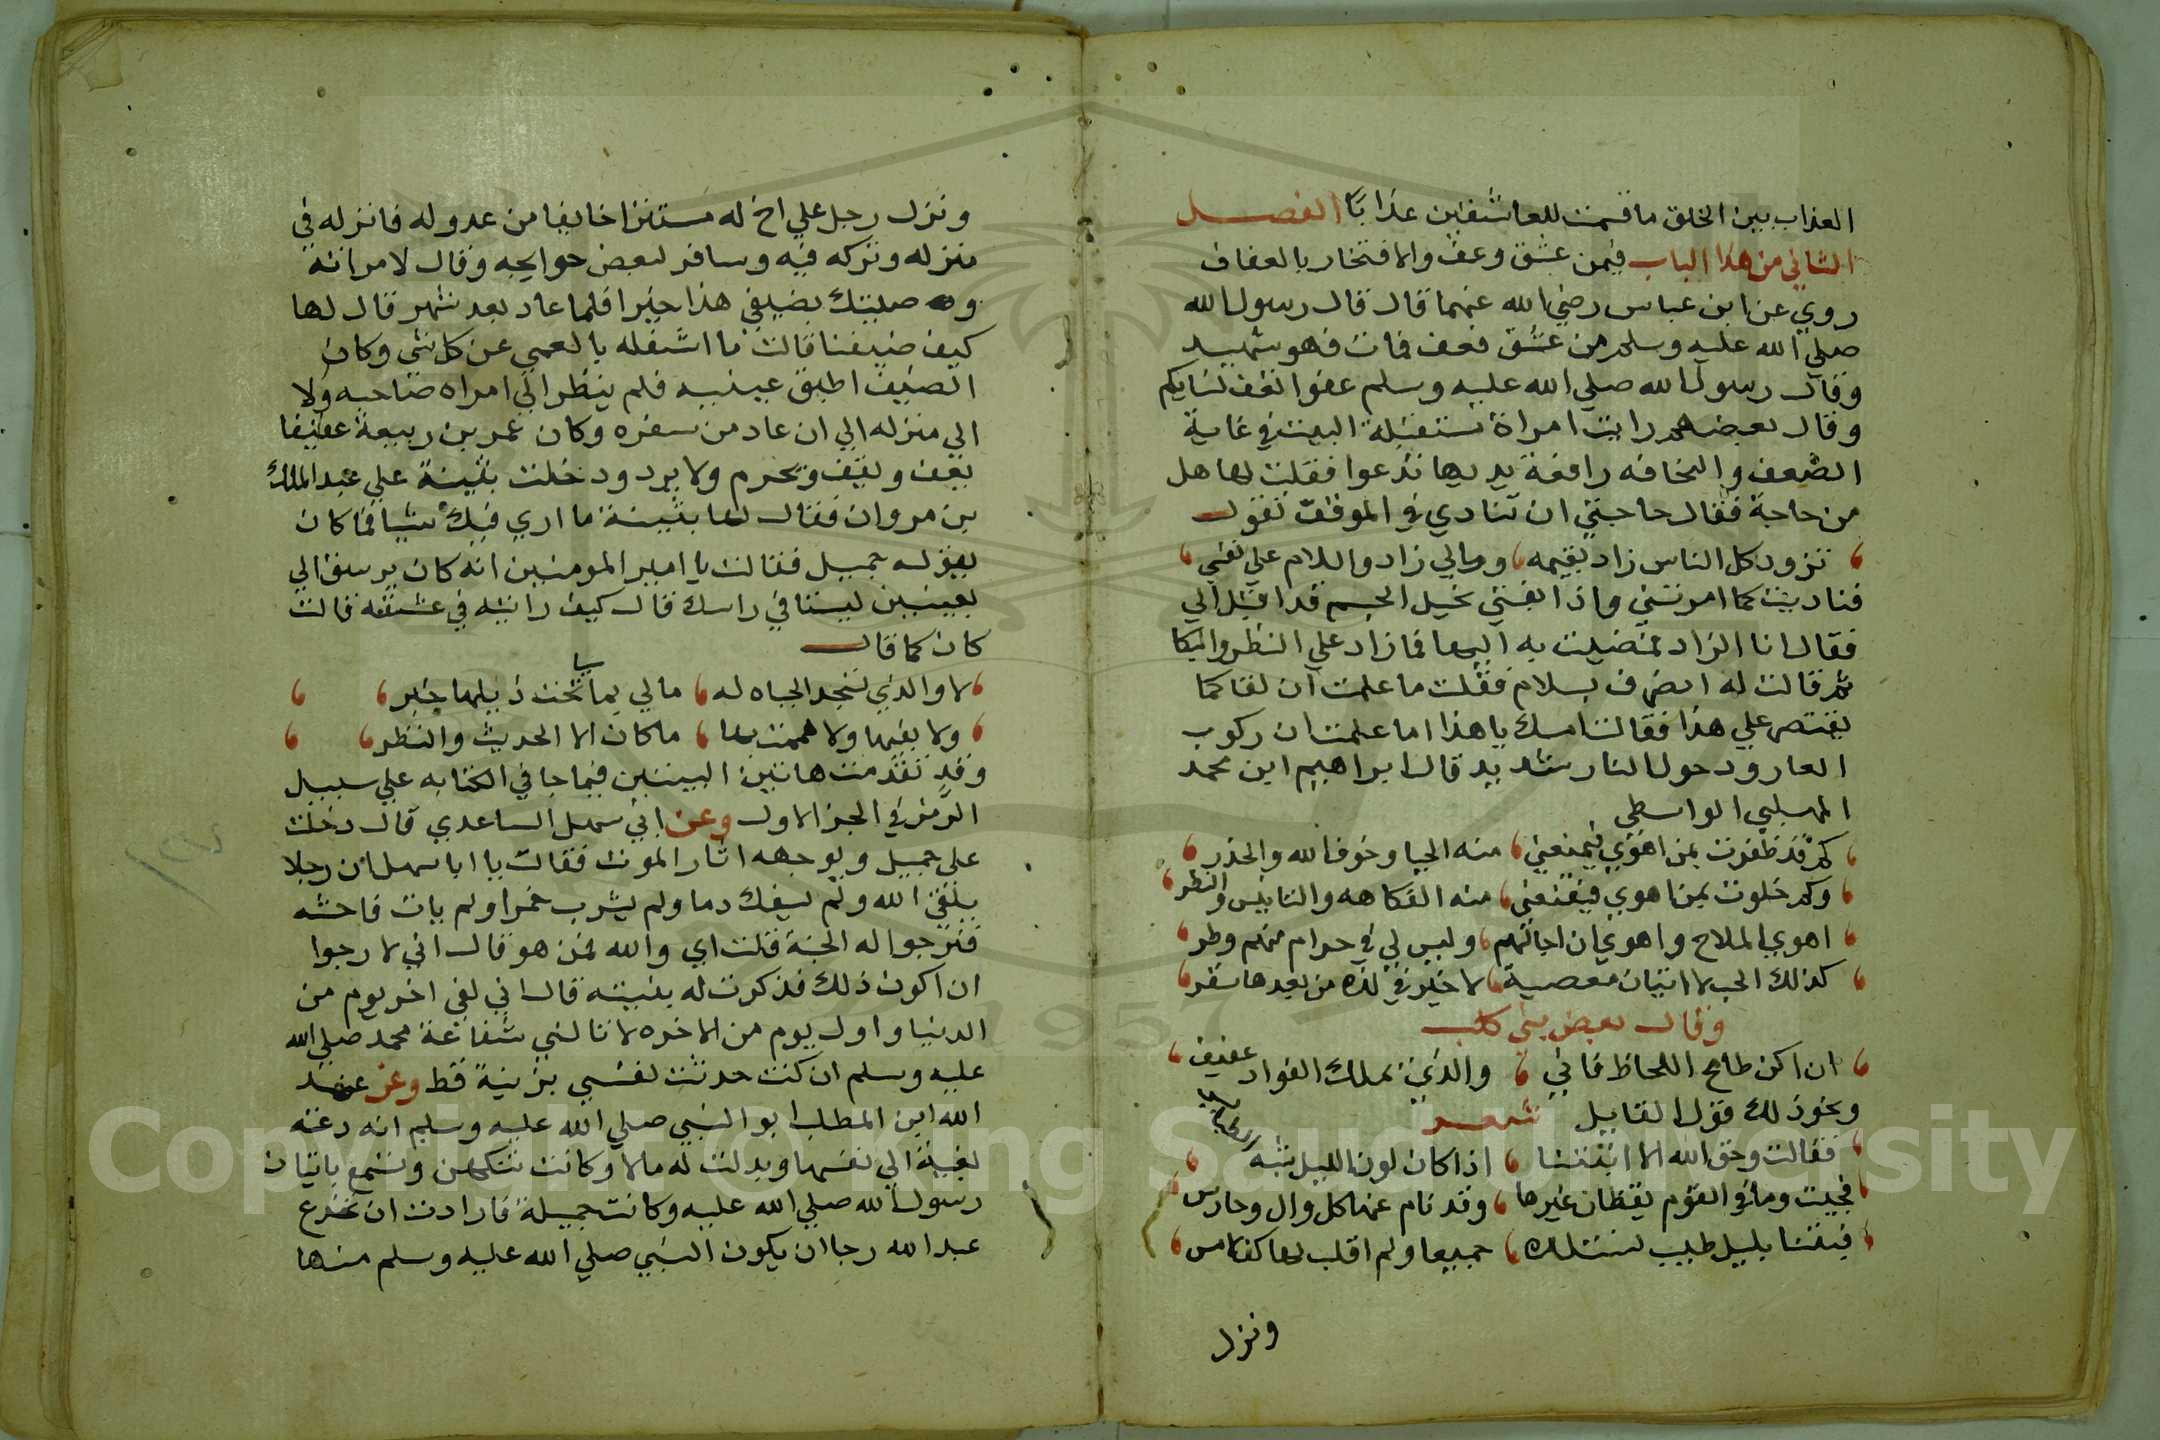 العذاب بين الخلق ما قسمت للعاشقين عذابا الفصل
الثاني من هذا الباب فيمن عشق وعف والافتخار بالعفاف
روي عن ابن عباس رضي الله عنهما قال قال رسول الله
صلي الله عليه وسلم من عشق فعف فمات فهو شهيد
وقال رسول الله صلي الله عليه وسلم عفوا تعف نسايكم
وقال بعضهم رايت امراة مستقبلة البيت في غاية
الضعف والنحافه رافعة يديها تدعوا فقلت لها هل
من حاجة فقال حاجتي ان تنادي في الموقف تقول
تزود كل الناس زاد يقيمه ومالي زاد والسلام علي نفسي
فناديت كما امرتني واذا بفتي نحيل الجسم قد اقبل الي
فقال انا الزاد فمضيت به اليها فما زاد علي النظر والبكا
ثم قالت له انصرف بسلام فقلت ما علمت ان لقاكما
يقتصر علي هذا فقالت امسك يا هذا اما علمت ان ركوب
العار ودخول النار شديد قال ابراهيم ابن محمد
المهلبي الواسطي
كم قد ظفرت بمن اهوي فيمنعني منه الحيا وخوف الله والحذر
وكم خلوت بمن اهوي فيقنعني منه الفكاهه والتانيس والنظر
اهوي الملاح واهوي ان اجالسهم وليس لي في حرام منهم وطر
كذلك الحب لا اتيان معصية لا خير في لذه من بعدها سقر
وقال بعض بني كلب
ان اكن طامح اللحاظ فاني والذي يملك الفواد عفيف
ونحو ذلك قول القايل شعر
فقالت وحق الله الا اتيتنا اذا كان لون الليل شبه
فجيت وما في القوم يقظان غيرها وقد نام عنها كل وال وحارس
فبتنا بليل طيب نستلذه جميعا ولم اقلب لها كف لامس
ونزل
ونزل رجل علي اخ له مستترا خايفا من عدو له فانزله في
منزله وتركه فيه وسافر لبعض حوايجه وقال لامراته
وصيتك بضيفي هذا خيرا فلما عاد بعد شهر قال لها
كيف ضيفنا قالت ما اشغله بالعمي عن كل شي وكان
الضيف اطبق عينيه فلم ينظر الي امراه صاحبه ولا
الي منزله الي ان عاد من سفره وكان عمر بن ربيعة عفيفا
يعف ويحرم ولا يرد ودخلت بثينة علي عبد الملك
بن مروان فقال لها بثينة ما اري فيك شيا فما كان
يقوله جميل فقالت يا امير المومنين انه كان يرمق الي
بعينين ليستا في راسك قال كيف رايتيه في عشقه قالت
كان كما قال
لا والذي تسجد الجباه له مالي بما تحت ذيلها خبر
ولا بفيها ولا هممت بها ما كان الا الحديث والنظر
وقد تقدمت هاتين البيتين فيما جا في الكنايه علي سبيل
الرمز في الجز الاول وعن ابي سهل الساعدي قال دخلت
علي جميل وبوجهه اثار الموت فقالت يا ابا سهل ان رجلا
يلقي الله ولم يسفك دما ولم يشرب خمرا ولم يات فاحشه
فترجوا له الجنة قلت اي والله فمن هو قال اني لا رجوا
ان اكون ذلك فذكرت له بثينه قال اني لفي اخر يوم من
الدنيا واول يوم من الاخره لا نالني شفاعة محمد صلي الله
عليه وسلم ان كنت حدثت نفسي بزنية قط وعن عبد
الله ابن المطلب ابو النبي صلي الله عليه وسلم انه دعته
بغية الي نفسها وبدلت له مالا وكانت تتكهن وتسمع باتيان
رسول الله صلي الله عليه وكانت جميلة فارادت ان تخدع
عبد الله رجا ان يكون النبي صلي الله عليه وسلم منها
1957
Copyright © King Saud University